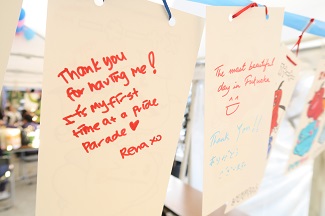 Thank you
for having me!
It's my first
time at a pride
Parade ♥
Rena xo
The most beautiful
day in Fukuoka
Thank You!!